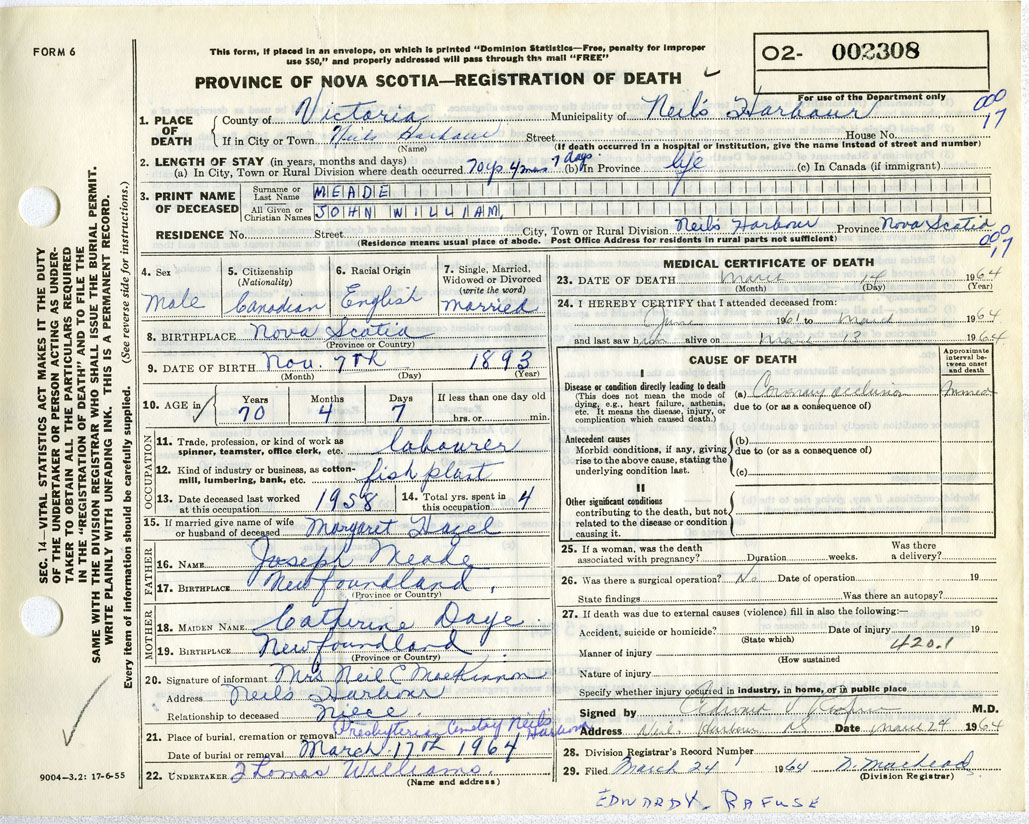 FORM 6
This form, if placed in an envelope, on which is printed "Dominion Statistics—Free, penalty for improper
use $50," and properly addressed will pass through the mail "FREE"
PROVINCE OF NOVA SCOTIA—REGISTRATION OF DEATH
O2- 002308
For use of the Department only
000
17
1. PLACE OF DEATH
County of Victoria Municipality of Neil's Harbour
If in City or Town Neils Harbour Street House No.
(Name) (If death occurred in a hospital or institution, give the name instead of street and number)
2. LENGTH OF STAY (in years, months and days)
(a) In City, Town or Rural Division where death occurred 70 yrs 4 mos 7 days. (b) In Province life (c) In Canada (if immigrant)
3. PRINT NAME OF DECEASED
Surname or Last Name MEADE
All Given or Christian Names JOHN WILLIAM,
RESIDENCE No. Street City, Town or Rural Division Neil's Harbour Province Nova Scotia
(Residence means usual place of abode. Post Office Address for residents in rural parts not sufficient)
000
17
4. Sex Male
5. Citizenship (Nationality) Canadian
6. Racial Origin English
7. Single, Married, Widowed or Divorced (write the word) married
8. BIRTHPLACE Nova Scotia
(Province or Country)
9. DATE OF BIRTH Nov. 7th 1893
(Month) (Day) (Year)
10. AGE in Years 70 Months 4 Days 7 If less than one day old hrs. or min.
OCCUPATION
11. Trade, profession, or kind of work as spinner, teamster, office clerk, etc. labourer
12. Kind of industry or business, as cotton-mill, lumbering, bank, etc. fish plant
13. Date deceased last worked at this occupation 1958
14. Total yrs. spent in this occupation 4
15. If married give name of wife or husband of deceased Margaret Hazel
FATHER
16. NAME Joseph Meade
17. BIRTHPLACE Newfoundland,
(Province or Country)
MOTHER
18. MAIDEN NAME Catherine Daye.
19. BIRTHPLACE Newfoundland
(Province or Country)
20. Signature of informant Mrs Neil C MacKinnon
Address Neils Harbour
Relationship to deceased Niece.
21. Place of burial, cremation or removal Presbyterian Cemetry Neil's Harbour
Date of burial or removal March 17th 1964
22. UNDERTAKER Thomas Williams.
(Name and address)
9004—3.2: 17-6-55
SEC. 14—VITAL STATISTICS ACT MAKES IT THE DUTY
OF THE UNDERTAKER OR PERSON ACTING AS UNDER-
TAKER TO OBTAIN ALL THE PARTICULARS REQUIRED
IN THE "REGISTRATION OF DEATH" AND TO FILE THE
SAME WITH THE DIVISION REGISTRAR WHO SHALL ISSUE THE BURIAL PERMIT.
WRITE PLAINLY WITH UNFADING INK. THIS IS A PERMANENT RECORD.
Every item of information should be carefully supplied. (See reverse side for instructions.)
MEDICAL CERTIFICATE OF DEATH
23. DATE OF DEATH March 14 1964
(Month) (Day) (Year)
24. I HEREBY CERTIFY that I attended deceased from:
June 1961 to March 1964
and last saw him alive on March 13 1964
CAUSE OF DEATH
Approximate interval between onset and death
I
Disease or condition directly leading to death
(This does not mean the mode of dying, e.g., heart failure, asthenia, etc. It means the disease, injury, or complication which caused death.)
(a) Coronary occlusion
due to (or as a consequence of)
Antecedent causes
Morbid conditions, if any, giving rise to the above cause, stating the underlying condition last.
(b)
due to (or as a consequence of)
(c)
II
Other significant conditions
contributing to the death, but not related to the disease or condition causing it.
25. If a woman, was the death associated with pregnancy? Duration weeks. Was there a delivery?
26. Was there a surgical operation? No Date of operation 19
State findings Was there an autopsy?
27. If death was due to external causes (violence) fill in also the following:—
Accident, suicide or homicide? Date of injury 19
(State which)
420.1
Manner of injury
(How sustained)
Nature of injury
Specify whether injury occurred in industry, in home, or in public place
Signed by Edward M.D.
Address Neil's Harbour NS Date March 24 1964
28. Division Registrar's Record Number
29. Filed March 24 1964
(Division Registrar)
EDWARD RAFUSE